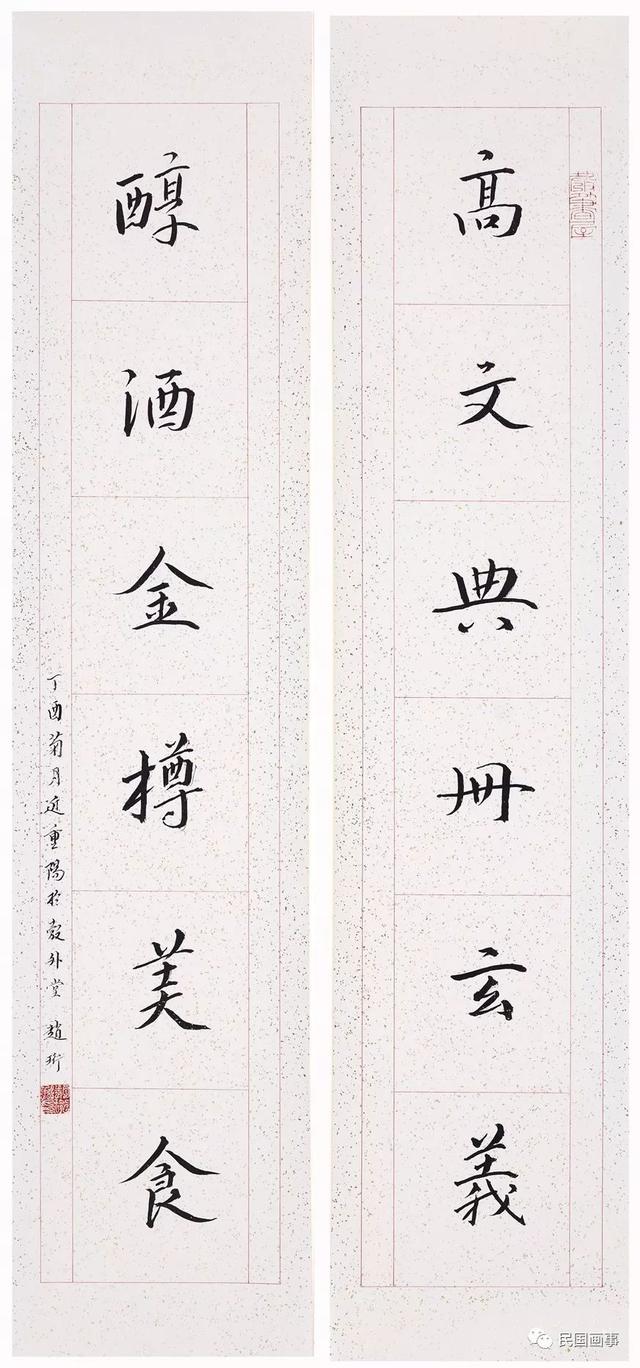 高文典冊玄義
醇酒金樽美食
丁酉菊月近重陽於彀外堂 趙珩
民国画事